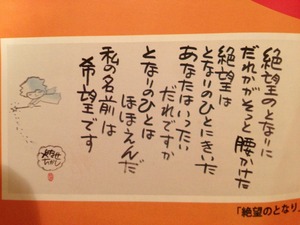 絶望のとなりに
だれかがそっと腰かけた
絶望は
となりのひとにきいた
あなたはいったい
だれですか
となりのひとは
ほほえんだ
私の名前は
希望です
やなせ
たかし
「絶望のとなり